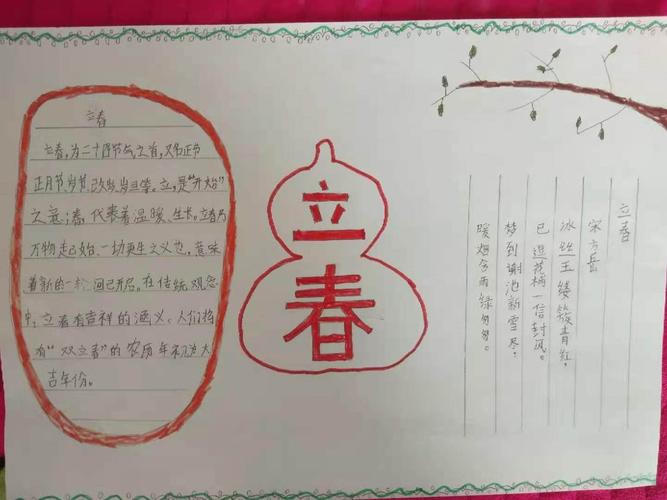 立春
立春,为二十四节气之首,又名正节
正月节、岁节、改岁、岁旦等。立,是"开始"
之意;春,代表着温暖、生长。立春乃
万物起始、一切更生之义也,意味
着新的一轮回已开启。在传统观念
中,立春有吉祥的涵义。人们将
有"双立春"的农历年视为大
吉年份。
立
春
立春
宋方岳
冰丝玉缕簇青红,
已逗花梢一信封风。
梦到谢池新雪尽,
暖烟含雨绿匆匆。